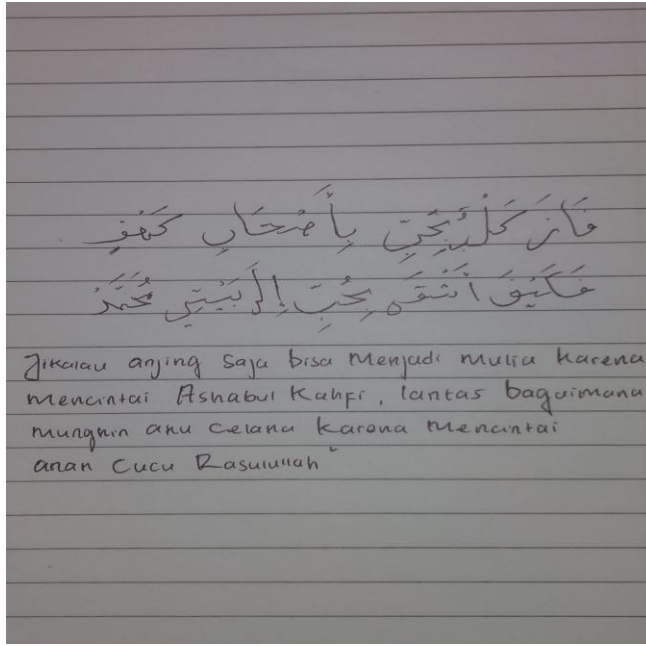 فَازَ كَلْبٌ بِحُبِّ بِأَصْحَابِ كَهْفٍ
فَكَيْفَ أَشْقَى بِحُبِّ إِلَى بَيْتِي مُحَمَّدْ
Jikalau anjing saja bisa Menjadi mulia karena
mencintai Ashabul Kahfi, lantas bagaimana
mungkin aku celaka karena mencintai
anak cucu Rasulullah"